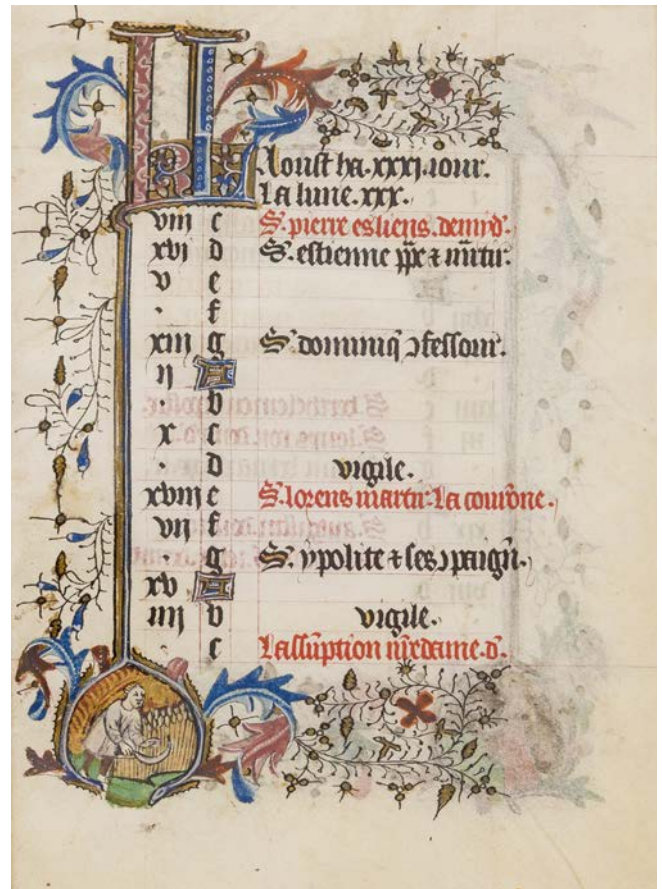 KL Aoust ha .xxxi. iour.
La lune .xxx.
viii c S. pierre esliens. demyd'.
xvi d S. estienne pp̄e ⁊ m̄rtir.
v e
. f
xiii g S. dominiq̄ ɔfessour.
ii A
. b
x c
. d vigile.
xviii e S. lorens martir. La courōne.
vii f
. g S. ypolite ⁊ ses ɔpaigñ.
xv A
iiii b vigile.
. c Lassūption n̄r̄edame. d'.